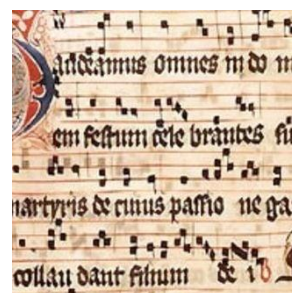 audeamus omnes in do m
em festum cele brantes su
martyris de cuius passio ne ga
collau dant filium de i